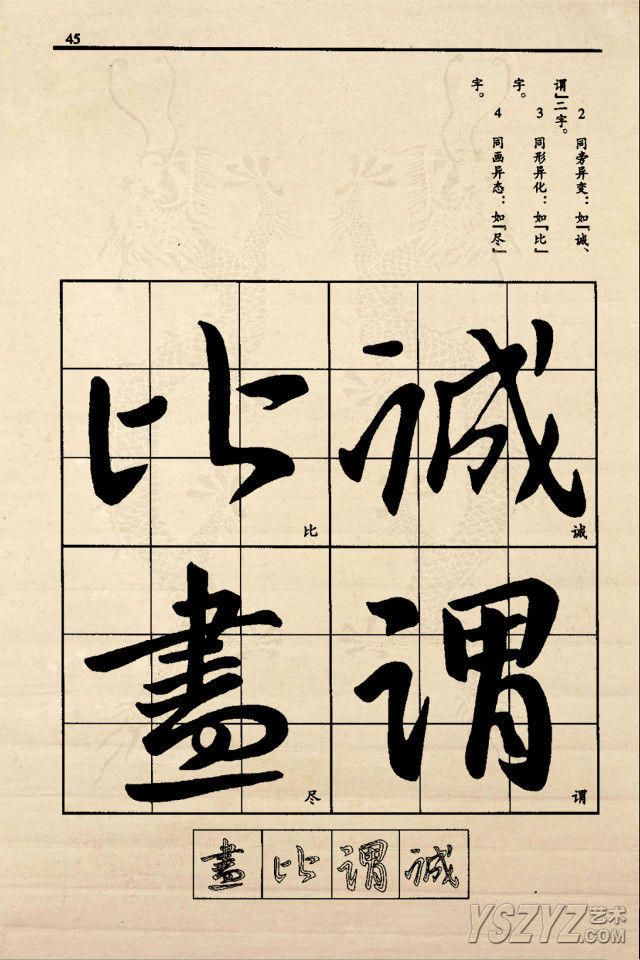 45
2 同旁异变：如『诚、
谓』二字。
3 同形异化：如『比』
字。
4 同画异态：如『尽』
字。
誠
诚
謂
谓
比
比
盡
尽
盡 比 謂 誠
YSZYZ艺术
.COM